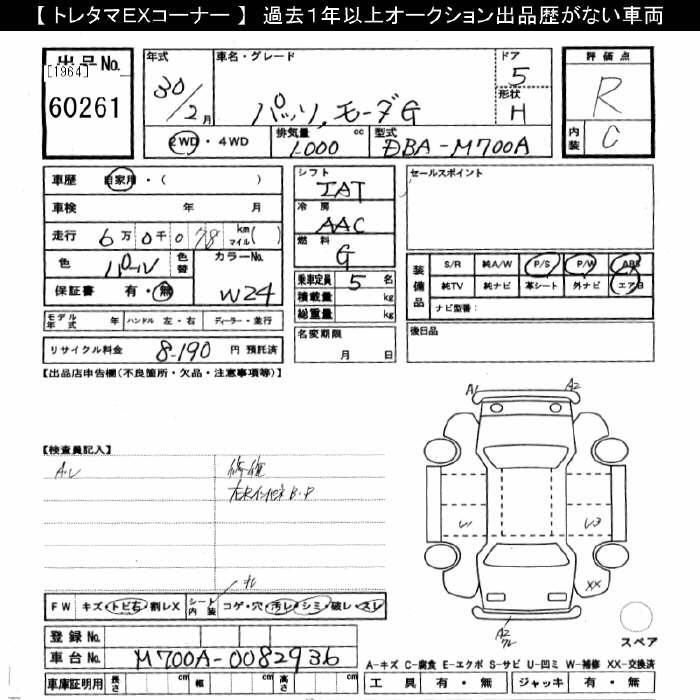 【 トレタマEXコーナー 】 過去1年以上オークション出品歴がない車両
出品No.
[1964]
60261
年式
30/2月
車名・グレード
パッソ,モーダG
ドア
5
形状
H
評価点
R
内装 C
2WD・4WD
排気量 1.000 cc
型式 DBA-M700A
車歴 自家用・( )
車検 年 月
走行 6万0千078 km マイル( )
色 パールV 色替
カラーNo. W24
保証書 有・無
モデル年式 年 ハンドル 左・右 ディーラー・並行
リサイクル料金 8.190 円 預託済
シフト
IAT
冷房
AAC
燃料
G
乗車定員 5 名
積載量 kg
総重量 kg
名変期限
月 日
セールスポイント
装備品
S/R 純A/W P/S P/W ABS
純TV 純ナビ 革シート 外ナビ エアB
ナビ型番:
後日品
【出品店申告欄(不良箇所・欠品・注意事項等)】
【検査員記入】
修復
A1
A2
U3
XX
A2
スペア
FW キズ・トビ石・割レX シート内装 コゲ・穴・汚レ・シミ・破レ・スレ
登録No.
車台No. M700A-0082936
車庫証明用 長さ cm 幅 cm 高さ cm
A-キズ C-腐食 E-エクボ S-サビ U-凹ミ W-補修 XX-交換済
工具 有・無 ジャッキ 有・無